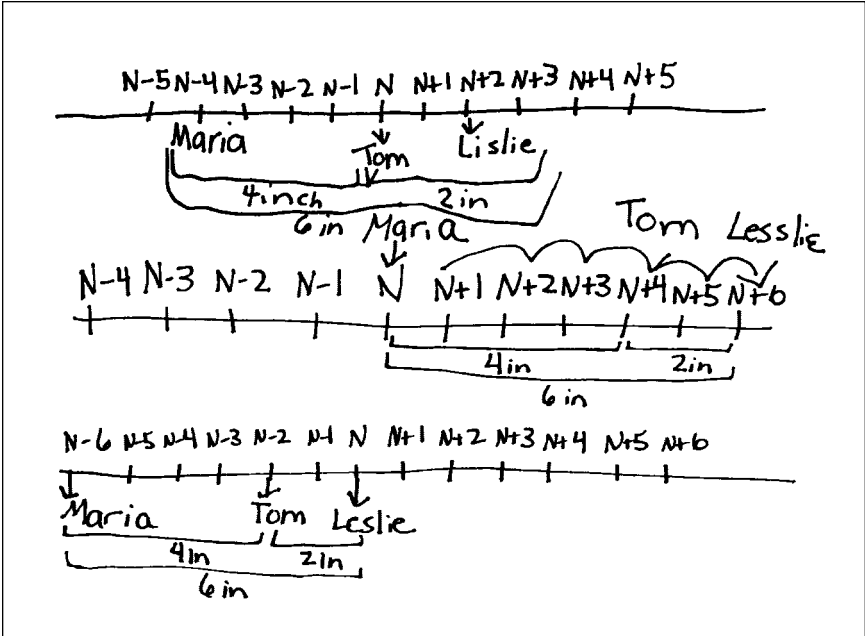 N-5 N-4 N-3 N-2 N-1 N N+1 N+2 N+3 N+4 N+5
Maria Tom Lislie
4inch 2in
6 in Maria Tom Lesslie
N-4 N-3 N-2 N-1 N N+1 N+2 N+3 N+4 N+5 N+6
4in 2in
6 in
N-6 N-5 N-4 N-3 N-2 N-1 N N+1 N+2 N+3 N+4 N+5 N+6
Maria Tom Leslie
4in 2in
6 in